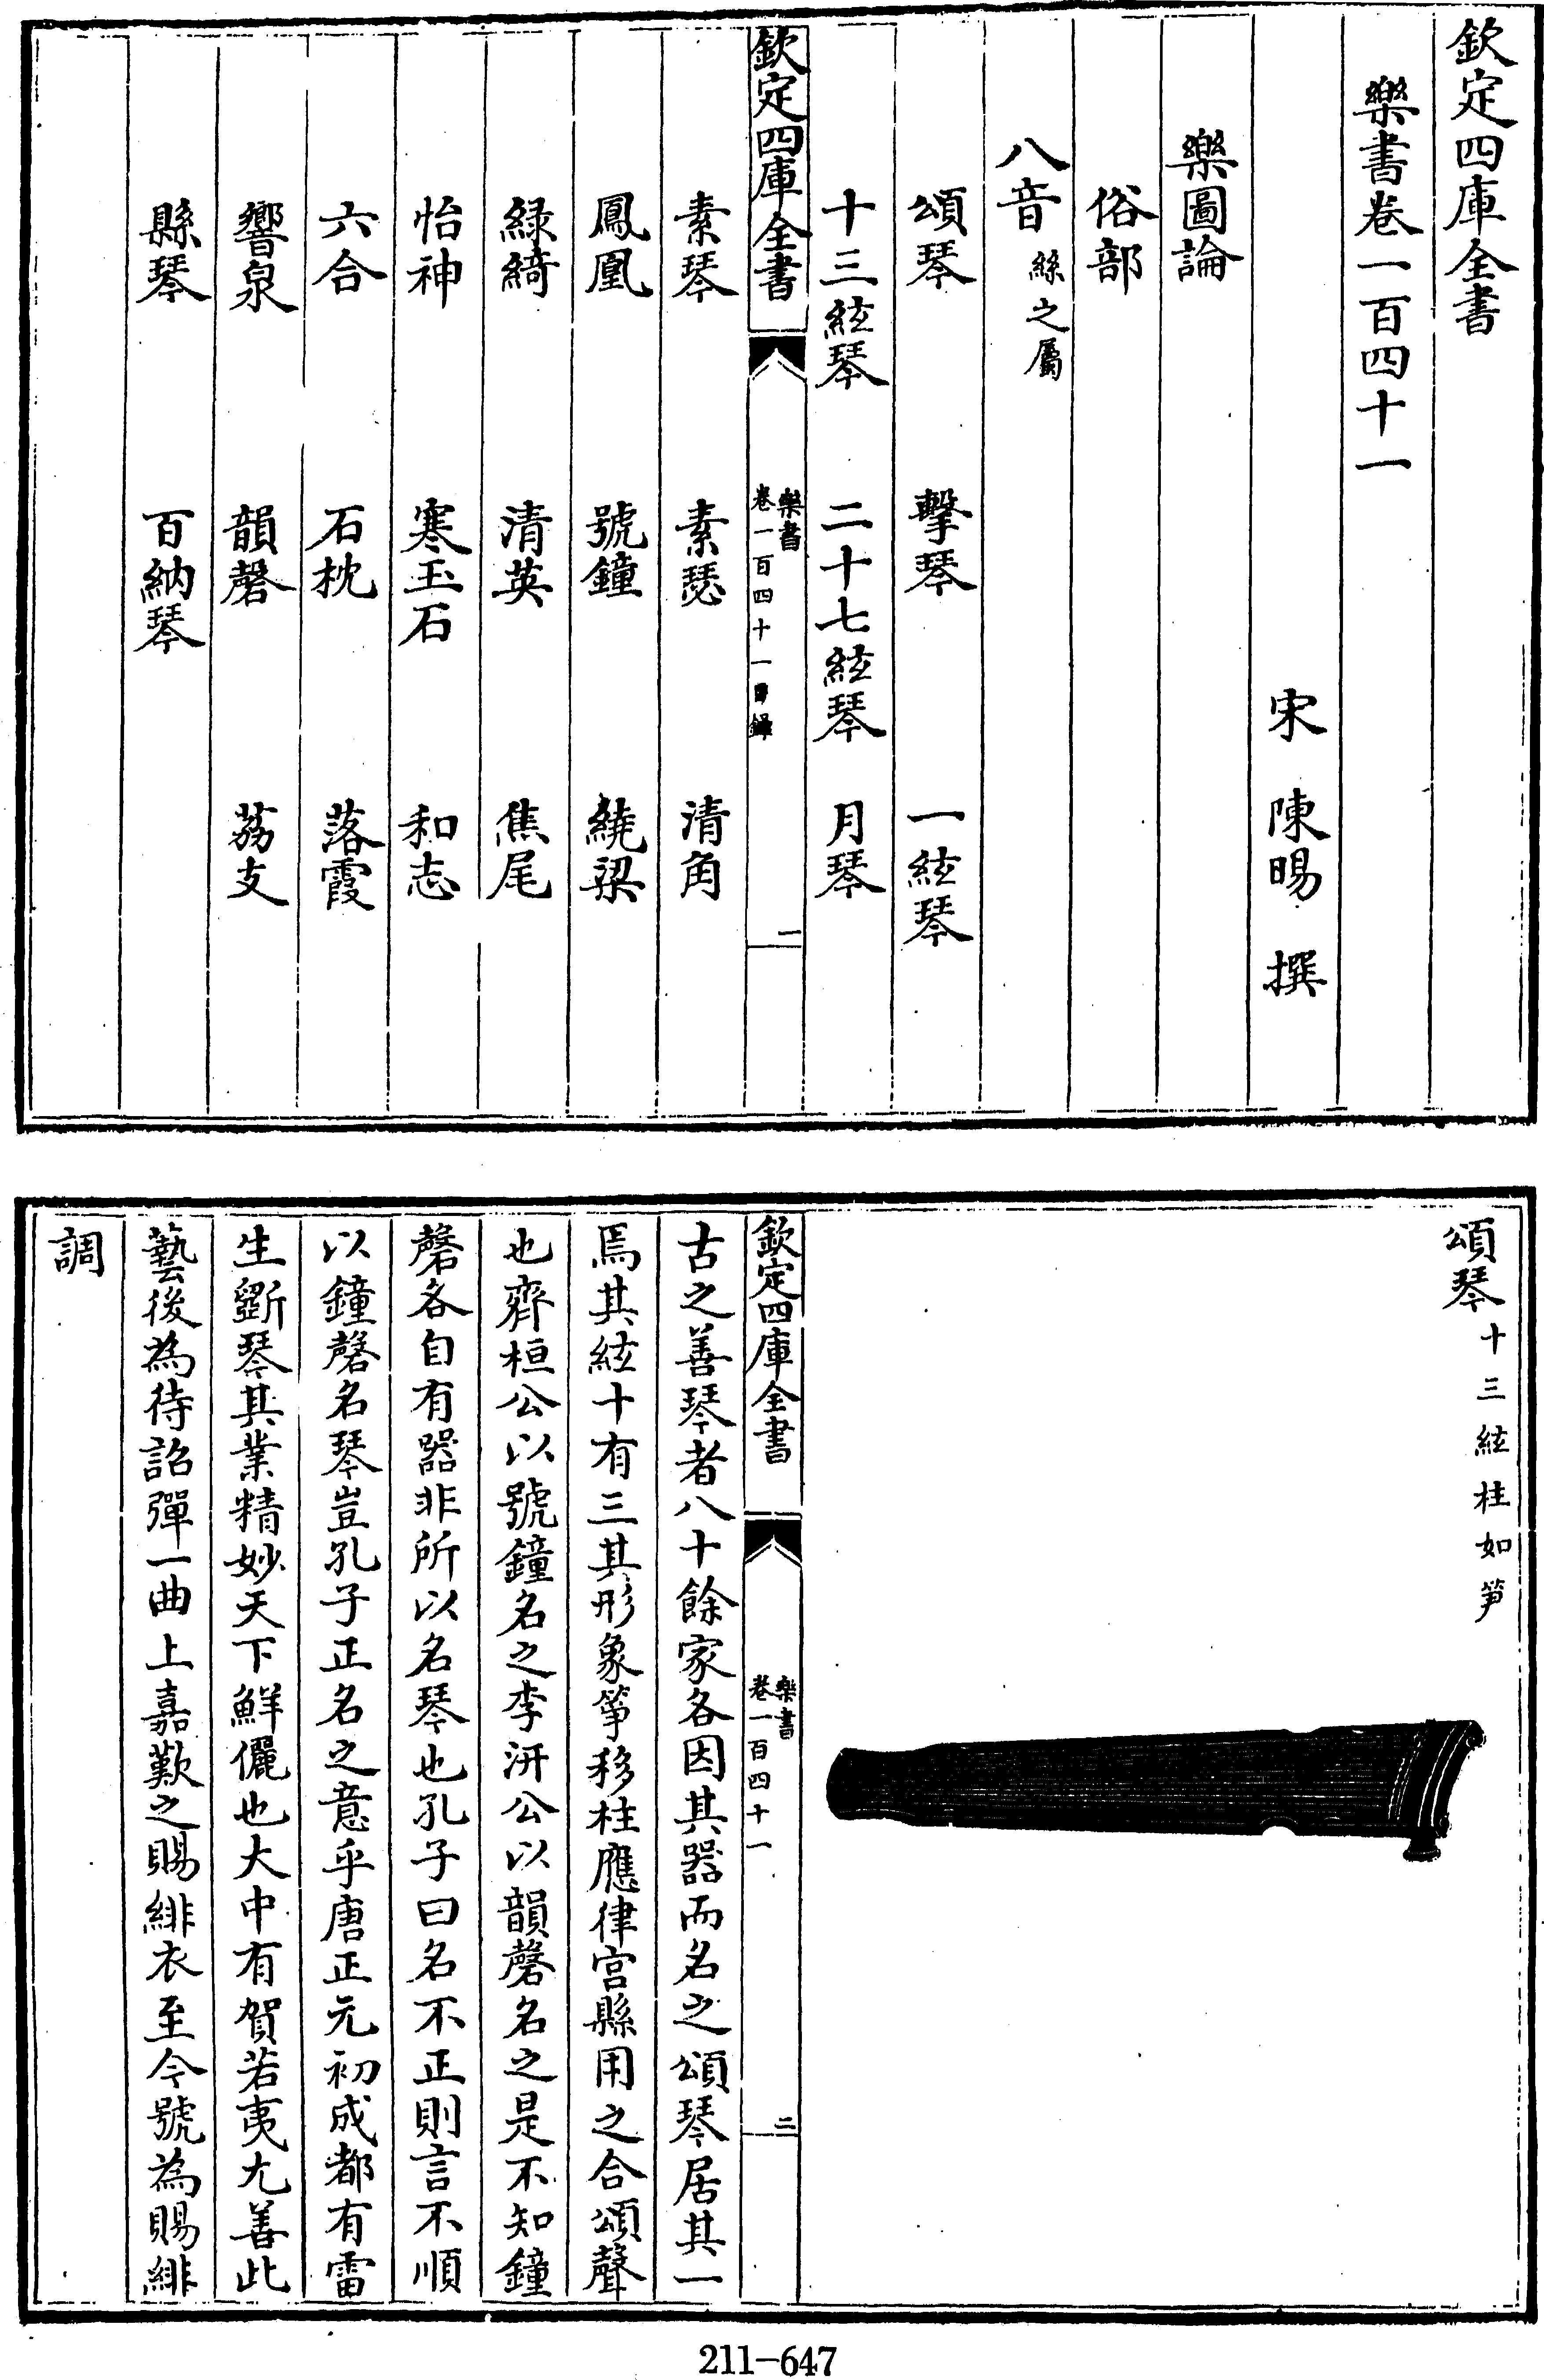 欽定四庫全書
樂書卷一百四十一
宋　陳暘　撰
樂圖論
俗部
八音 絲之屬
頌琴　擊琴　一絃琴
十三絃琴　二十七絃琴　月琴
欽定四庫全書　樂書 卷一百四十一目錄　一
素琴　素瑟　清角
鳳凰　號鐘　繞梁
綠綺　清英　焦尾
怡神　寒玉石　和志
六合　石枕　落霞
響泉　韻磬　荔支
縣琴　百納琴
頌琴 十三絃柱如笋
欽定四庫全書　樂書 卷一百四十一　二
古之善琴者八十餘家各因其器而名之頌琴居其一
焉其絃十有三其形象箏移柱應律宮縣用之合頌聲
也齊桓公以號鐘名之李汧公以韻磬名之是不知鐘
磬各自有器非所以名琴也孔子曰名不正則言不順
以鐘磬名琴豈孔子正名之意乎唐正元初成都有雷
生斵琴其業精妙天下鮮儷也大中有賀若夷尤善此
藝後為待詔彈一曲上嘉歎之賜緋衣至今號為賜緋
調
211-647